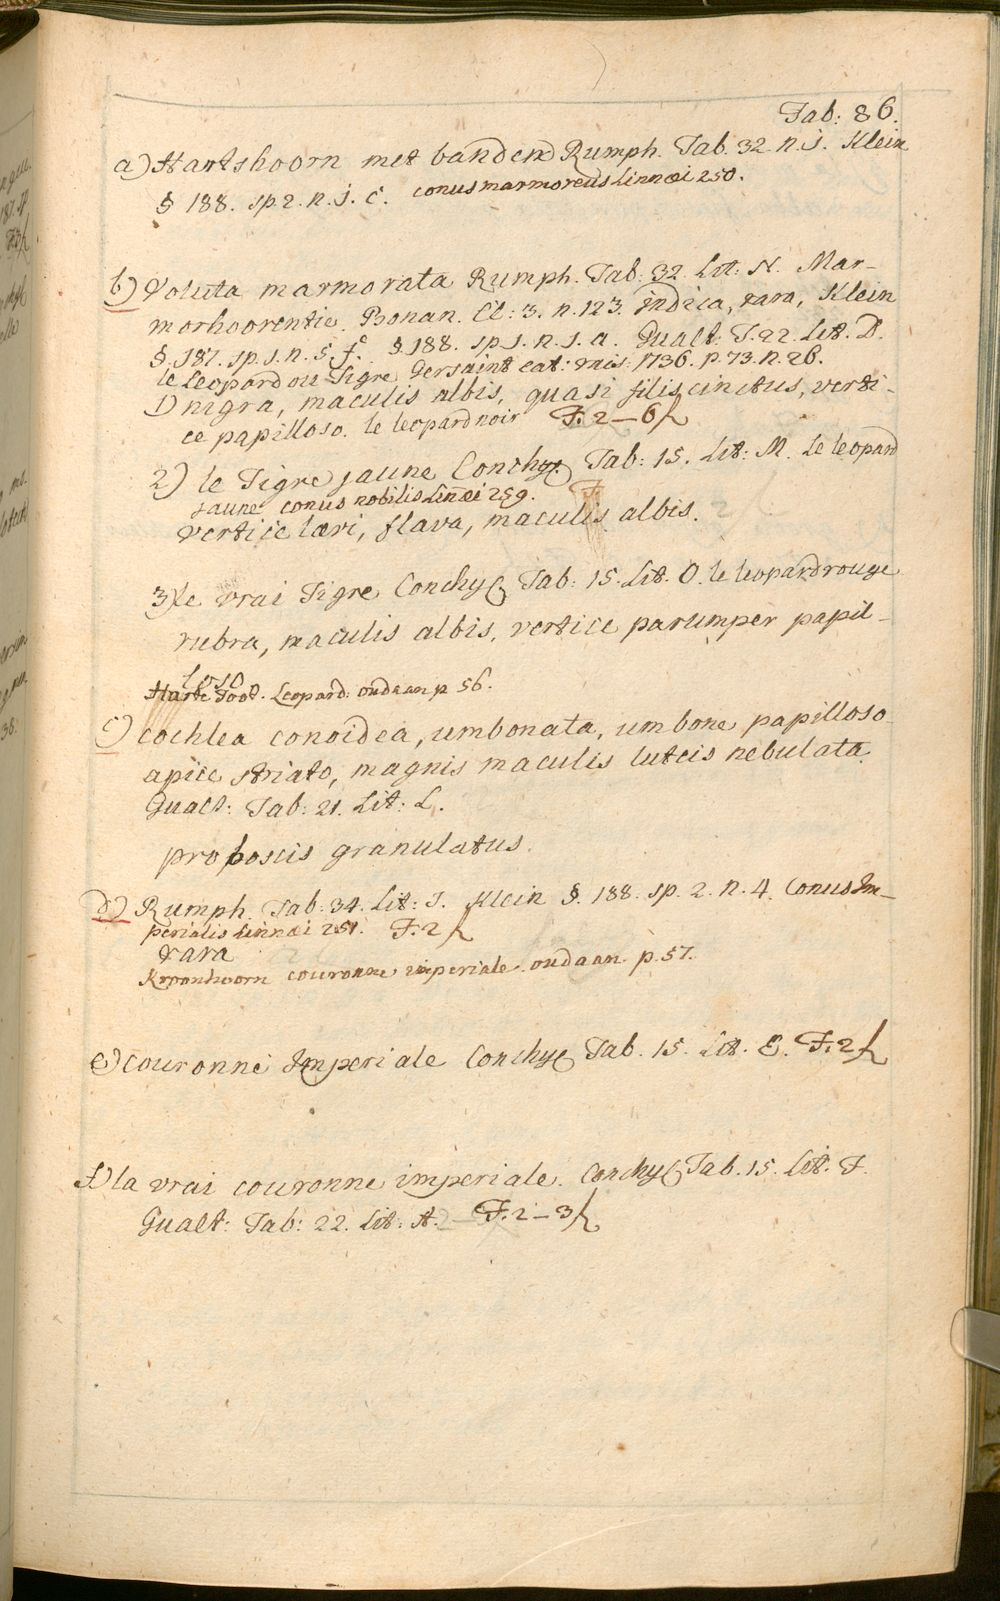 Tab: 86.
a) Hartshoorn met banden Rumph. Tab. 32 n. j. Klein
§ 188. sp. 2. n. j. c. conus marmoreus Linnæi 250.
b) Voluta marmorata Rumph. Tab: 32. Lit: N. Mar-
morhoorentie. Bonan. Cl: 3. n. 123. indica, rara, Klein
§. 187. sp. j. n. 5. f. § 188. sp. j. n. j. a. Gualt: T. 22. Lit. D.
le Leopard ou Tigre Gersaint cat: rais. 1736. p. 73. n. 26.
1) nigra, maculis albis, quasi filis cinctus, verti-
ce papilloso. le leopard noir F. 2 – 6
2) le Tigre jaune Conchyl. Tab: 15. Lit: M. Le leopard
jaune conus nobilis Linnæi 259. F.
vertice lævi, flava, maculis albis.
3) le vrai Tigre Conchyl Tab: 15. Lit. O. le leopard rouge
rubra, maculis albis, vertice parumper papil-
loso
Leopard: oudaan p 56.
c) Cochlea conoidea, umbonata, umbone papilloso
apice striato, magnis maculis luteis nebulata.
Gualt: Tab: 21. Lit: L.
proboscis granulatus.
d) Rumph. Tab: 34. Lit: J. Klein §. 188. sp. 2. n. 4. Conus Im-
perialis Linnæi 251. F. 2
rara
Kroonhoorn couronne imperiale. oudaan. p. 57.
e) couronne Imperiale Conchyl Tab. 15. Lit. E. F. 2
f) la vrai couronne imperiale. Conchyl Tab. 15. Lit. F.
Gualt: Tab: 22. Lit: A. F. 2 – 3